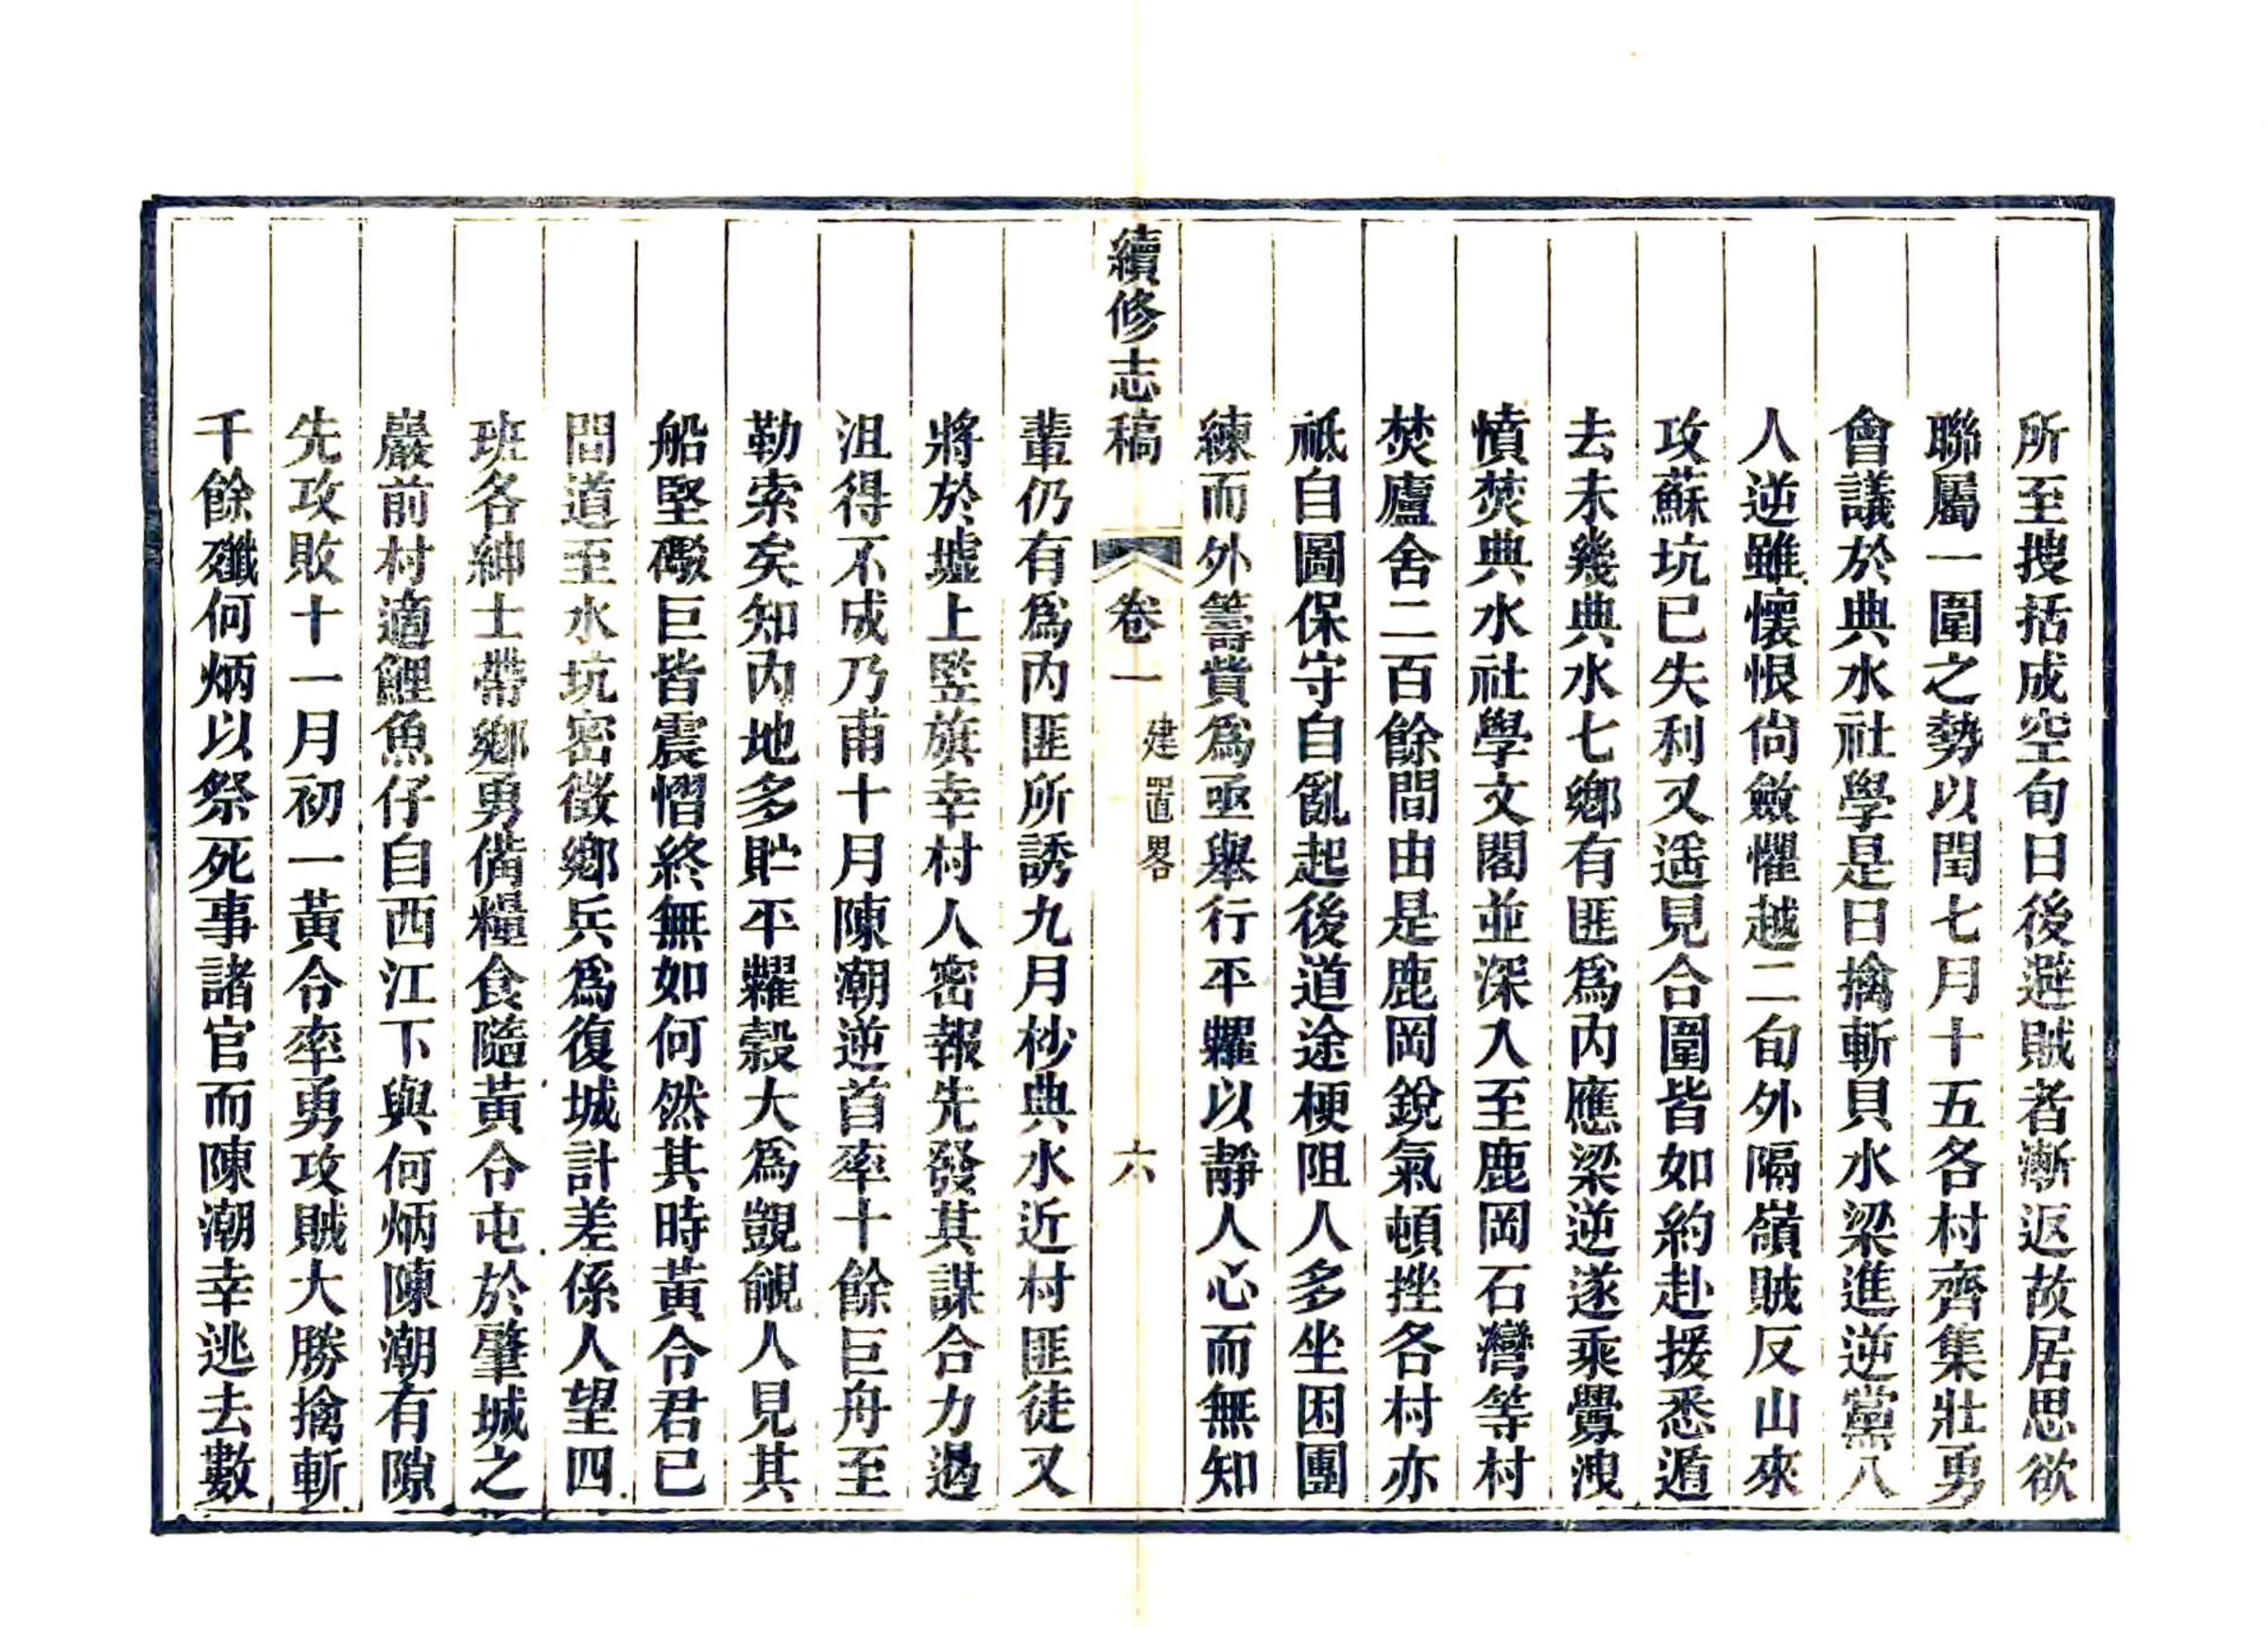 所至搜括成空旬日後避賊者漸返故居思欲
聯屬一圍之勢以閏七月十五各村齊集壯勇
會議於典水社學是日擒斬貝水梁進逆黨八
人逆雖懷恨尙斂懼越二旬外隔嶺賊反山來
攻蘇坑已失利又遥見合圍皆如約赴援悉遁
去未幾典水七鄉有匪爲内應梁逆遂乘釁洩
憤焚典水社學文閣並深入至鹿岡石灣等村
焚廬舍二百餘間由是鹿岡銳氣頓挫各村亦
祗自圖保守自亂起後道途梗阻人多坐困團
練而外籌貲爲亟舉行平糶以靜人心而無知
續修志稿
卷一
建置畧
六
輩仍有爲内匪所誘九月杪典水近村匪徒又
將於墟上竪旗幸村人密報先發其謀合力遏
沮得不成乃甫十月陳潮逆首率十餘巨舟至
勒索矣知内地多貯平糶穀大爲覬覦人見其
船堅礮巨皆震慴終無如何然其時黃令君已
間道至水坑密徵鄉兵爲復城計差係人望四
班各紳士帶鄉勇備糧食隨黃令屯於肇城之
巖前村適鯉魚仔自西江下與何炳陳潮有隙
先攻敗十一月初一黃令率勇攻賊大勝擒斬
千餘殲何炳以祭死事諸官而陳潮幸逃去數